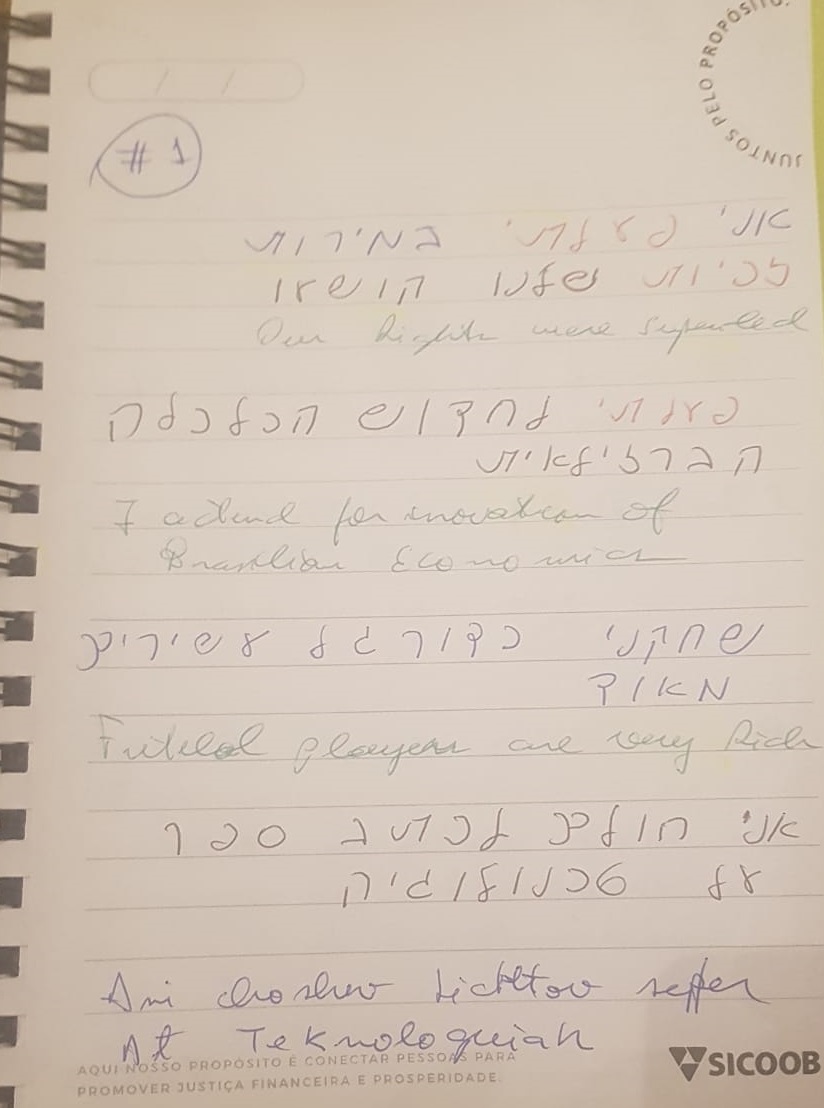 JUNTOS PELO PROPÓSITO.
/ /
# 1
אני פעלתי במירות
זכיות שלנו הושעו
Our Rights were Supended
פעלתי לחדוש הכלכלה
הברזילאית
I actend for inovation of
Brasilian Economics
שחקני כדורגל עשירים
מאוד
Futebol players are very Rich
אני חולם לכתוב ספר
על טכנולוגיה
Ani choshev Lichtov seffer
At Teknologuiah
AQUI NOSSO PROPÓSITO É CONECTAR PESSOAS PARA
PROMOVER JUSTIÇA FINANCEIRA E PROSPERIDADE.
SICOOB